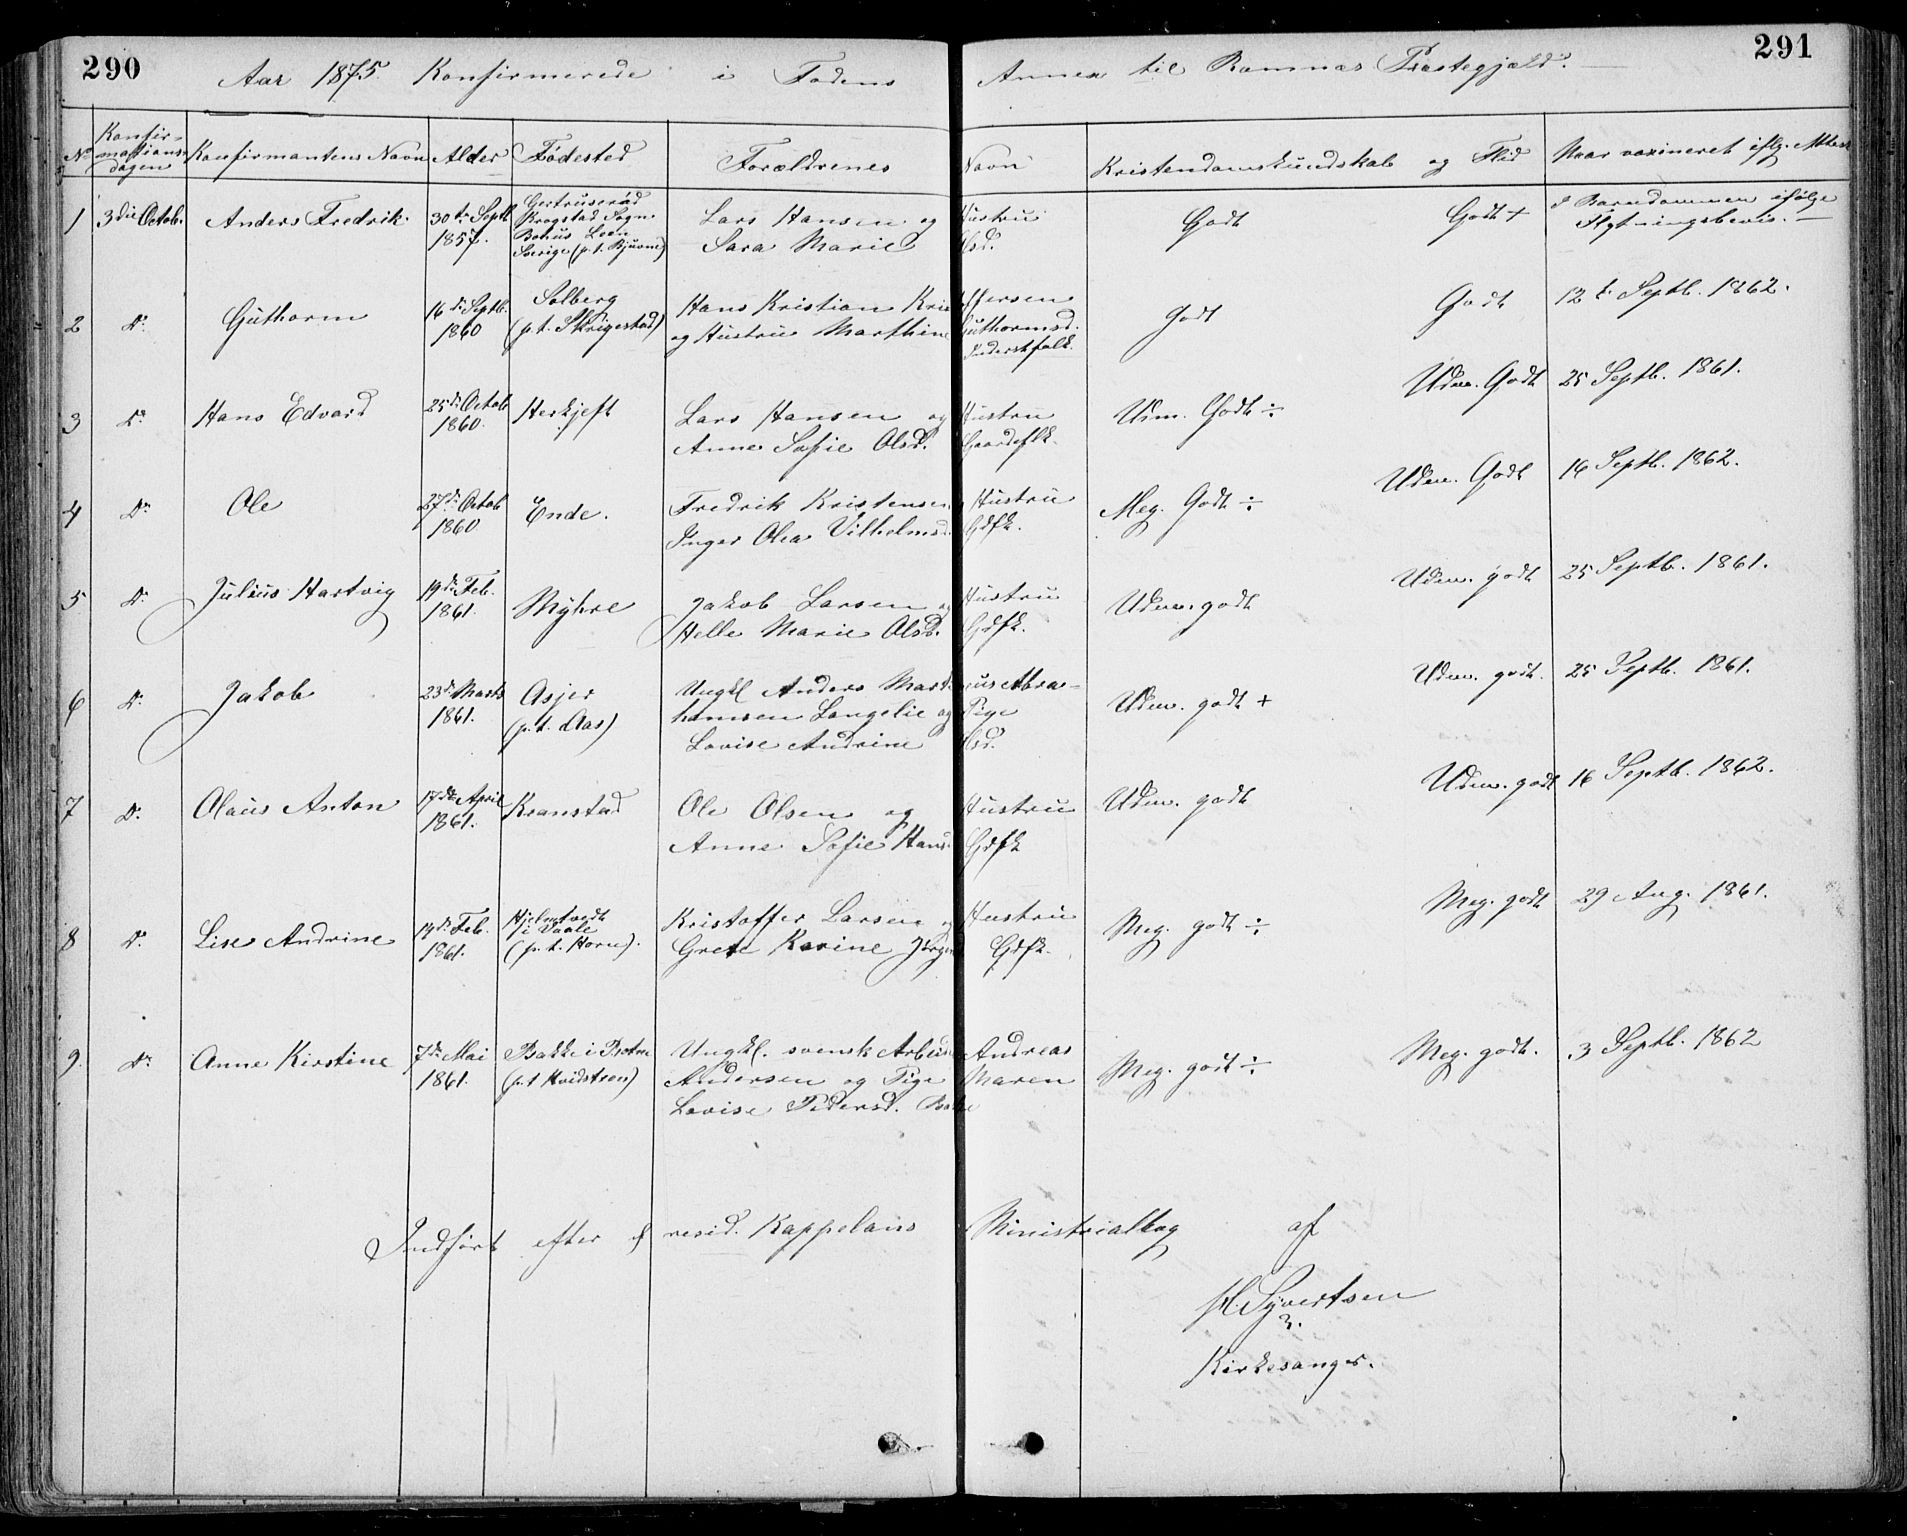 290
291
Aar 1875 Konfirmerede i Fodens Annex til Ramnæs Præstegjæld.
No Konfirmationsdagen Konfirmantens Navn Alder Fødested Forældrenes Navn Kristendomskundskab og Flid Naar vaxineret iflg. Attest
1 3die Octob. Anders Fredrik 30te Septb. 1857. Gertruserød Krogstad Sogn Bohus Leen Sverige (p.t. Bjuvne)
Lars Hansen og Hustru
Sara Marie Olsd.
Godt Godt + I Barndommen ifølge Flytningsbevis. —
2 Do Guthorm 16de Septb. 1860 Solberg (p.t. Skrigestad)
Hans Kristian Kristoffersen
og Hustru Marthine Guthormsd.
Inderstfolk.
Godt Godt 12te Septb. 1862.
3 Do Hans Edvard 25de Octob 1860. Herkjeft
Lars Hansen og Hustru
Anne Sofie Olsd. Gaardeflk.
Udm. Godt ÷ Udm. Godt 25 Septb. 1861.
4 Do Ole 27de Octob 1860 Ende.
Fredrik Kristensen og Hustru
Inger Olea Vilhelmsd. Gdfk.
Meg. Godt ÷ Udm. Godt 16 Septb. 1862.
5 Do Julius Hartvig 19de Feb. 1861. Myhre
Jakob Larsen og Hustru
Helle Marie Olsd. Gdfk.
Udm. godt Udm. godt 25 Septb. 1861.
6 Do Jakob 23de Marts 1861. Asjer (p.t. Aas)
Ungkl Anders Martinus Abra-
hamsen Langelie og Pige
Lovise Andrine Olsd.
Udm. godt + Udm. godt. 25 Septb. 1861.
7 Do Olaus Anton 17de April 1861. Kranstad
Ole Olsen og Hustru
Anne Sofie Hansd. Gdfk
Udm. godt Udm. godt 16 Septb. 1862.
8 Do Lise Andrine 14de Feb. 1861. Hjelmtvedt i Vaale (p.t. Horn).
Kristoffer Larsen og Hustru
Grete Karine Jørgensd. Gdfk.
Meg. godt ÷ Meg. godt 29 Aug. 1861.
9. Do Anne Kirstine 7de Mai 1861. Bakke i Botne (p.t. Hvidsteen)
Ungkl. svensk Arbeider Andreas
Andersen og Pige Maren
Lovise Pedersd. Bakke
Meg. godt ÷ Meg. godt. 3 Septb. 1862
Indført efter resid. Kappelans Ministrialbog af
H. Syvertsen
Kirkesanger.